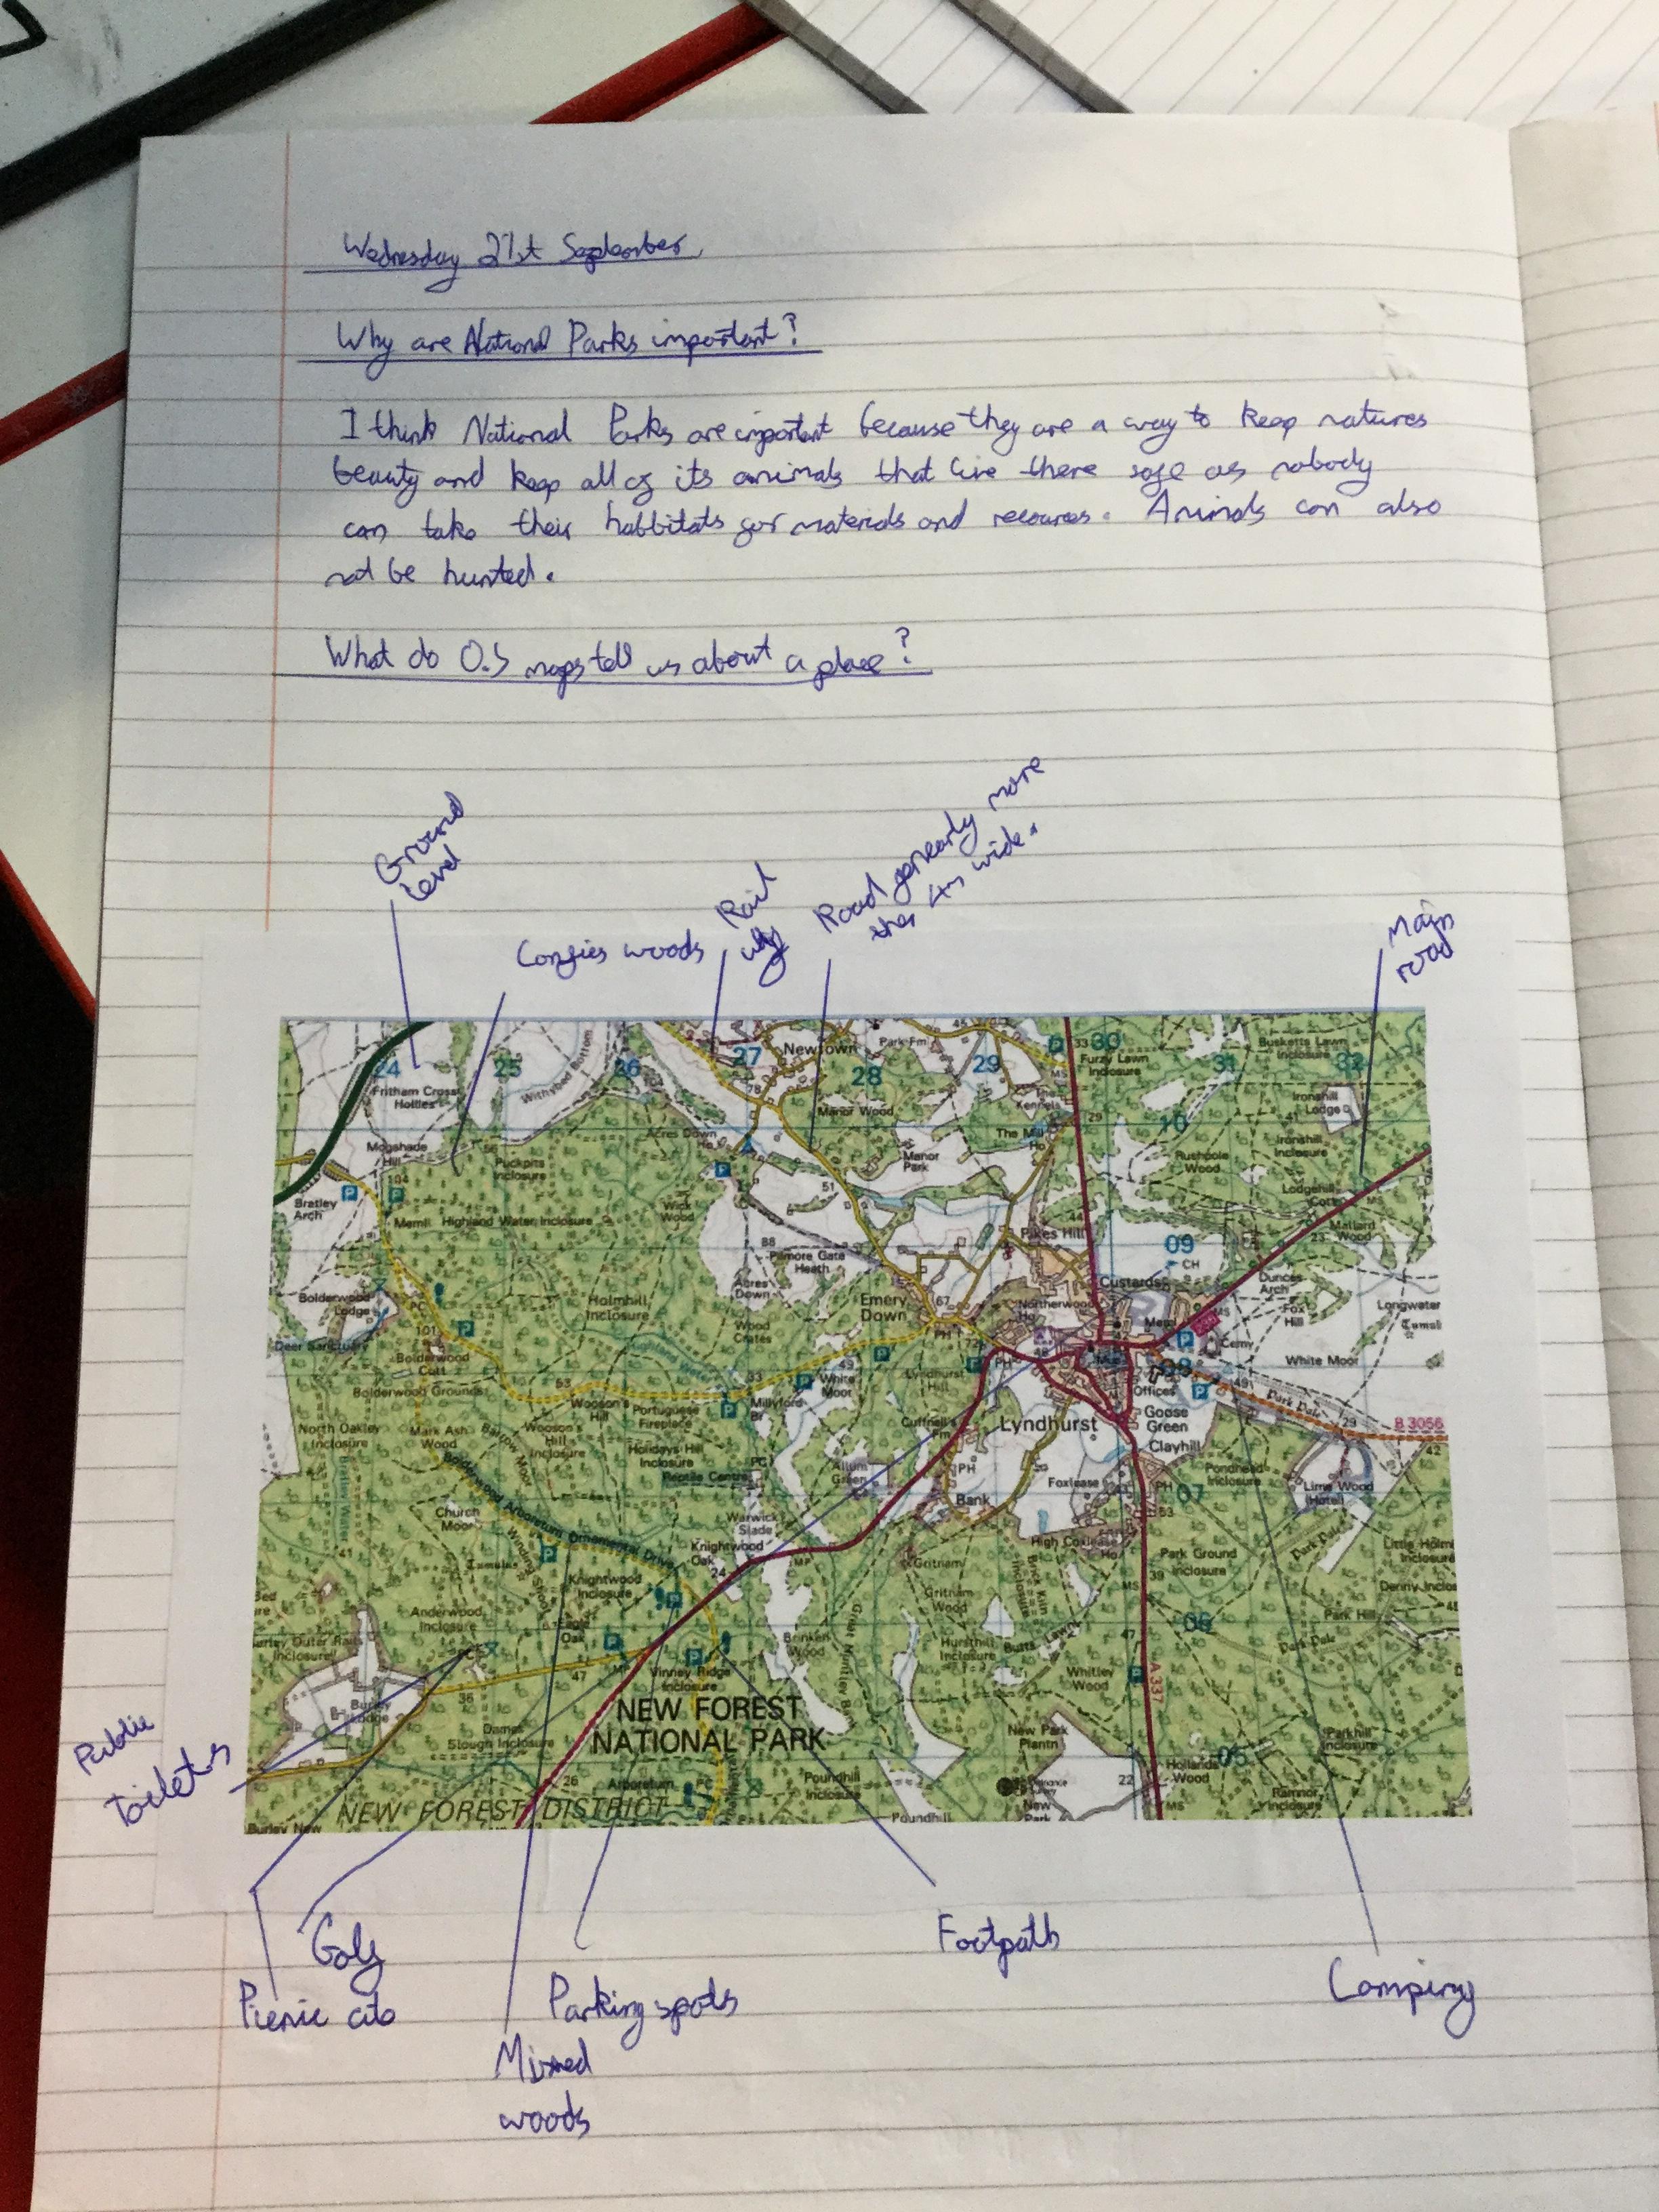 Wednesday 21st September
Why are National Parks important?
I think National Parks are important because they are a way to keep natures
beauty and keep all of its animals that live there safe as nobody
can take their habbitats for materials and recources. Animals can also
not be hunted.
What do O.S maps tell us about a place?
Ground
level
Confies woods
Rail
way
Road generly more
than 4m wide.
Main
road
24
25
26
27
28
29
30
31
32
Newtown
Park Fm
45
33
Furzy Lawn
Inclosure
Busketts Lawn
Inclosure
Fritham Cross
Hollies
Withybed Bottom
78
MS
Manor Wood
The
Kennels
29
10
Ironshill
Lodge
41
Ironshill
Inclosure
Mogshade
Hill
Acres Down
Ho
The Mill
Ho
Manor
Park
Rushpole
Wood
56
Puckpits
Inclosure
Lodgehill
Cott
Bratley
Arch
P
104
Meml
Highland Water Inclosure
Wick
Wood
51
44
Pikes Hill
Mallard
Wood
23
88
Pilmore Gate
Heath
09
CH
Acres
Down
Custards
Dunces
Arch
Bolderwood
Lodge
PC
Holmhill
Inclosure
Emery
Down
67
Northerwood
Ho
Fox
Hill
Longwater
Tumuli
Wood
Crates
PH
MS
Deer Sanctuary
101
Bolderwood
Cott
Highland Water
72
PH
48
Mus
Cemy
White Moor
49
White
Moor
Lyndhurst
Hill
08
Bolderwood Grounds
53
33
Offices
49
Park Pale
Wooson's
Hill
Portuguese
Fireplace
Millyford
Br
Cuffnell's
Fm
Lyndhurst
Goose
Green
29
B 3056
42
North Oakley
Inclosure
Mark Ash
Wood
Barrow Moor
Wooson's
Hill
Inclosure
Holidays Hill
Inclosure
Reptile Centre
PC
Allum
Green
PH
Clayhill
Pondhead
Inclosure
Bratley Water
Bolderwood Arboretum Ornamental Drive
Bank
Foxlease
PH
07
Lime Wood
(Hotel)
Church
Moor
Warwick
Slade
Knightwood
Oak
24
MP
High Coxlease
Ho
53
Park Pale
41
Tumulus
Winding Shoot
Knightwood
Inclosure
Gritnam
Park Ground
Inclosure
Little Holm
Inclosure
39
MS
Denny Inclos
Anderwood
Inclosure
Eagle
Oak
Gritnam
Wood
Brick Kiln
Inclosure
06
Park Hill
Burley Outer Rails
Inclosure
47
MP
Vinney Ridge
Inclosure
Brinken
Wood
Hursthill
Inclosure
Butts Lawn
47
Park Pale
36
Burley
Lodge
Whitley
Wood
A 337
NEW FOREST
NATIONAL PARK
Dames
Slough Inclosure
New Park
Plantn
Parkhill
Inclosure
05
26
Arboretum
PC
Poundhill
Inclosure
22
Hollands
Wood
Ramnor
Inclosure
NEW FOREST DISTRICT
Burley New
Poundhill
New
Park
MS
Public
toilets
Golf
Picnic
Parking spots
Mixed
woods
Footpath
Camping